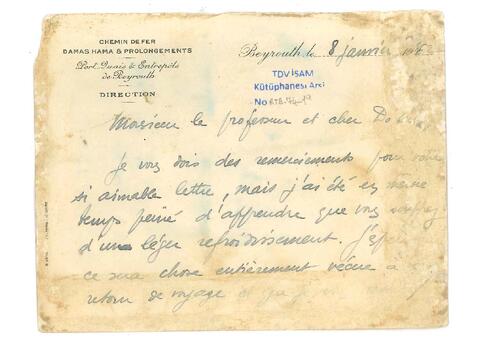 CHEMIN DE FER
DAMAS HAMA & PROLONGEMENTS
Port, Quais & Entrepôts
de Beyrouth
DIRECTION
Beyrouth le 8 janvier 19
TDV İSAM
Kütüphanesi Arşi
No RTB.
Monsieur le professeur et cher
Je vous dois des remerciements pour votre
si aimable lettre, mais j'ai été en même
temps peiné d'apprendre que vous souffrez
d'un léger refroidissement. J'espère
ce sera chose entièrement à
retour de voyage et